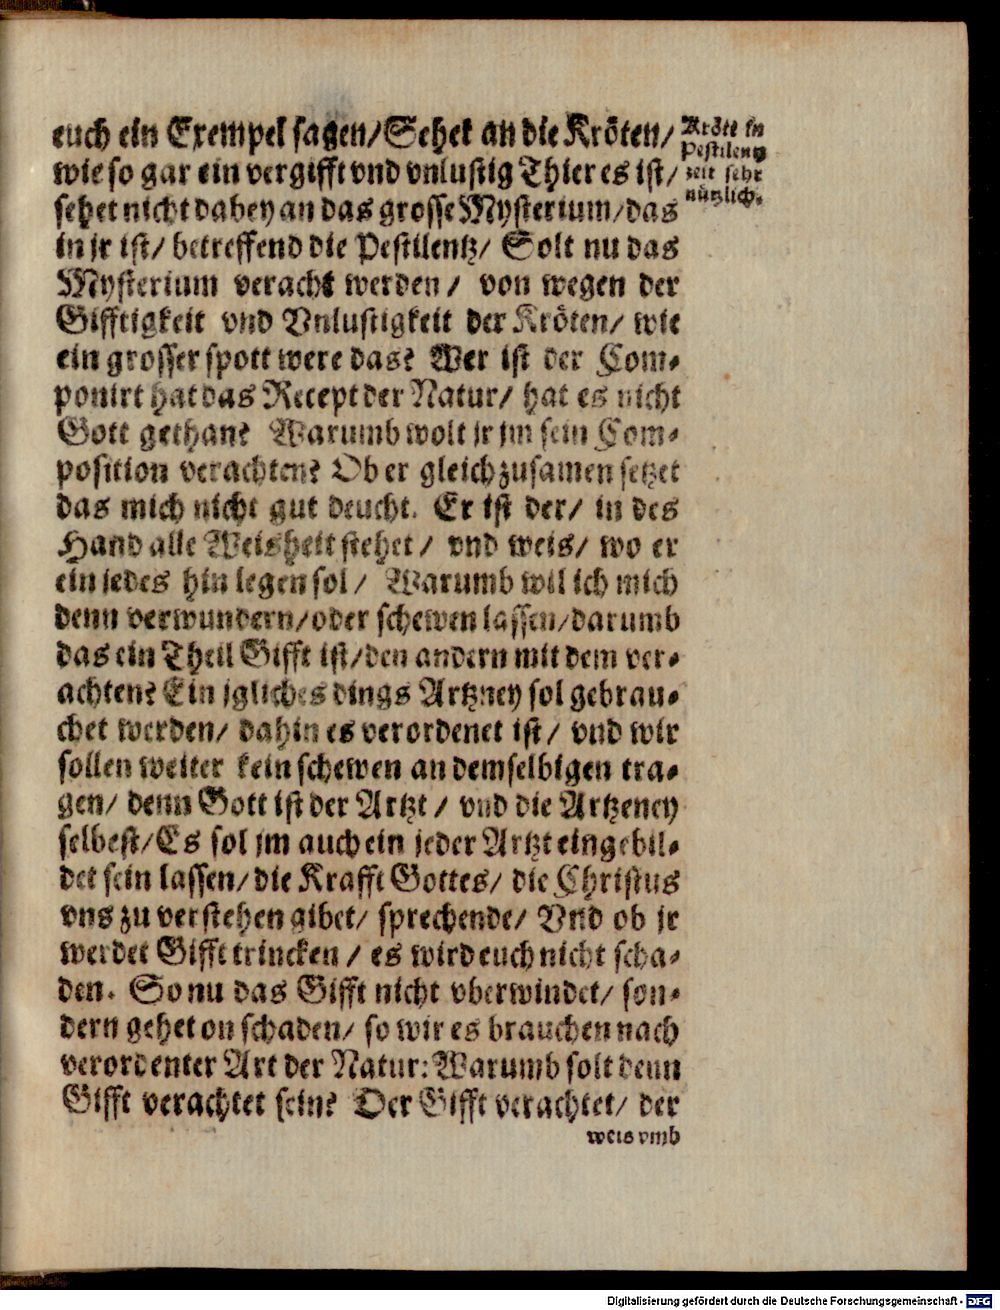 euch ein Exempel sagen/Sehet an die Kröten/
wie so gar ein vergifft vnd vnlustig Thier es ist/
sehet nicht dabey an das grosse Mysterium/das
in jr ist/ betreffend die Pestilentz/ Solt nu das
Mysterium veracht werden/ von wegen der
Gifftigkeit vnd Vnlustigkeit der Kröten/ wie
ein grosser spott were das? Wer ist der Com-
ponirt hat das Recept der Natur/ hat es nicht
Gott gethan? Warumb wolt jr jm sein Com-
position verachten? Ob er gleich zusamen setzet
das mich nicht gut deucht. Er ist der/ in des
Hand alle Weisheit stehet/ vnd weis/ wo er
ein jedes hin legen sol/ Warumb wil ich mich
denn verwundern/oder schewen lassen/darumb
das ein Theil Gifft ist/den andern mit dem ver-
achten? Ein jgliches dings Artzney sol gebrau-
chet werden/ dahin es verordenet ist/ vnd wir
sollen weiter kein schewen an demselbigen tra-
gen/ denn Gott ist der Artzt/ vnd die Artzeney
selbest/Es sol jm auch ein jeder Artzt eingebil-
det sein lassen/die Krafft Gottes/ die Christus
vns zu verstehen gibet/ sprechende/ Vnd ob jr
werdet Gifft trincken/ es wird euch nicht scha-
den. So nu das Gifft nicht vberwindet/ son-
dern gehet on schaden/ so wir es brauchen nach
verordenter Art der Natur: Warumb solt denn
Gifft verachtet sein? Der Gifft verachtet/ der
weis vmb
Kröte in
Pestilentz
zeit sehr
nützlich.
Digitalisierung gefördert durch die Deutsche Forschungsgemeinschaft - DFG